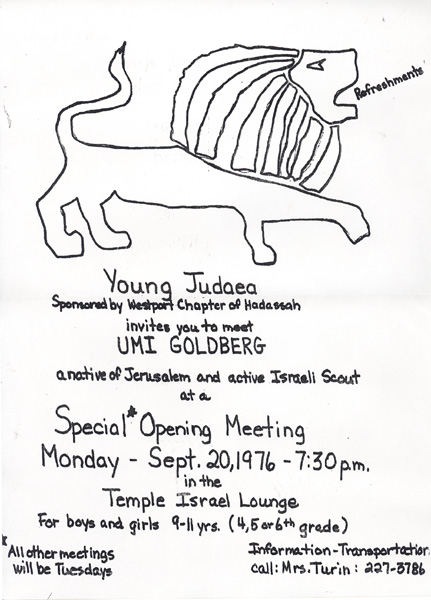 Refreshments
Young Judaea
Sponsored by Westport Chapter of Hadassah
invites you to meet
UMI GOLDBERG
a native of Jerusalem and active Israeli Scout
at a
Special* Opening Meeting
Monday - Sept. 20, 1976 - 7:30 p.m.
in the
Temple Israel Lounge
For boys and girls 9-11 yrs. (4, 5 or 6th grade)
* All other meetings
will be Tuesdays
Information - Transportation
call: Mrs. Turin: 227-3786